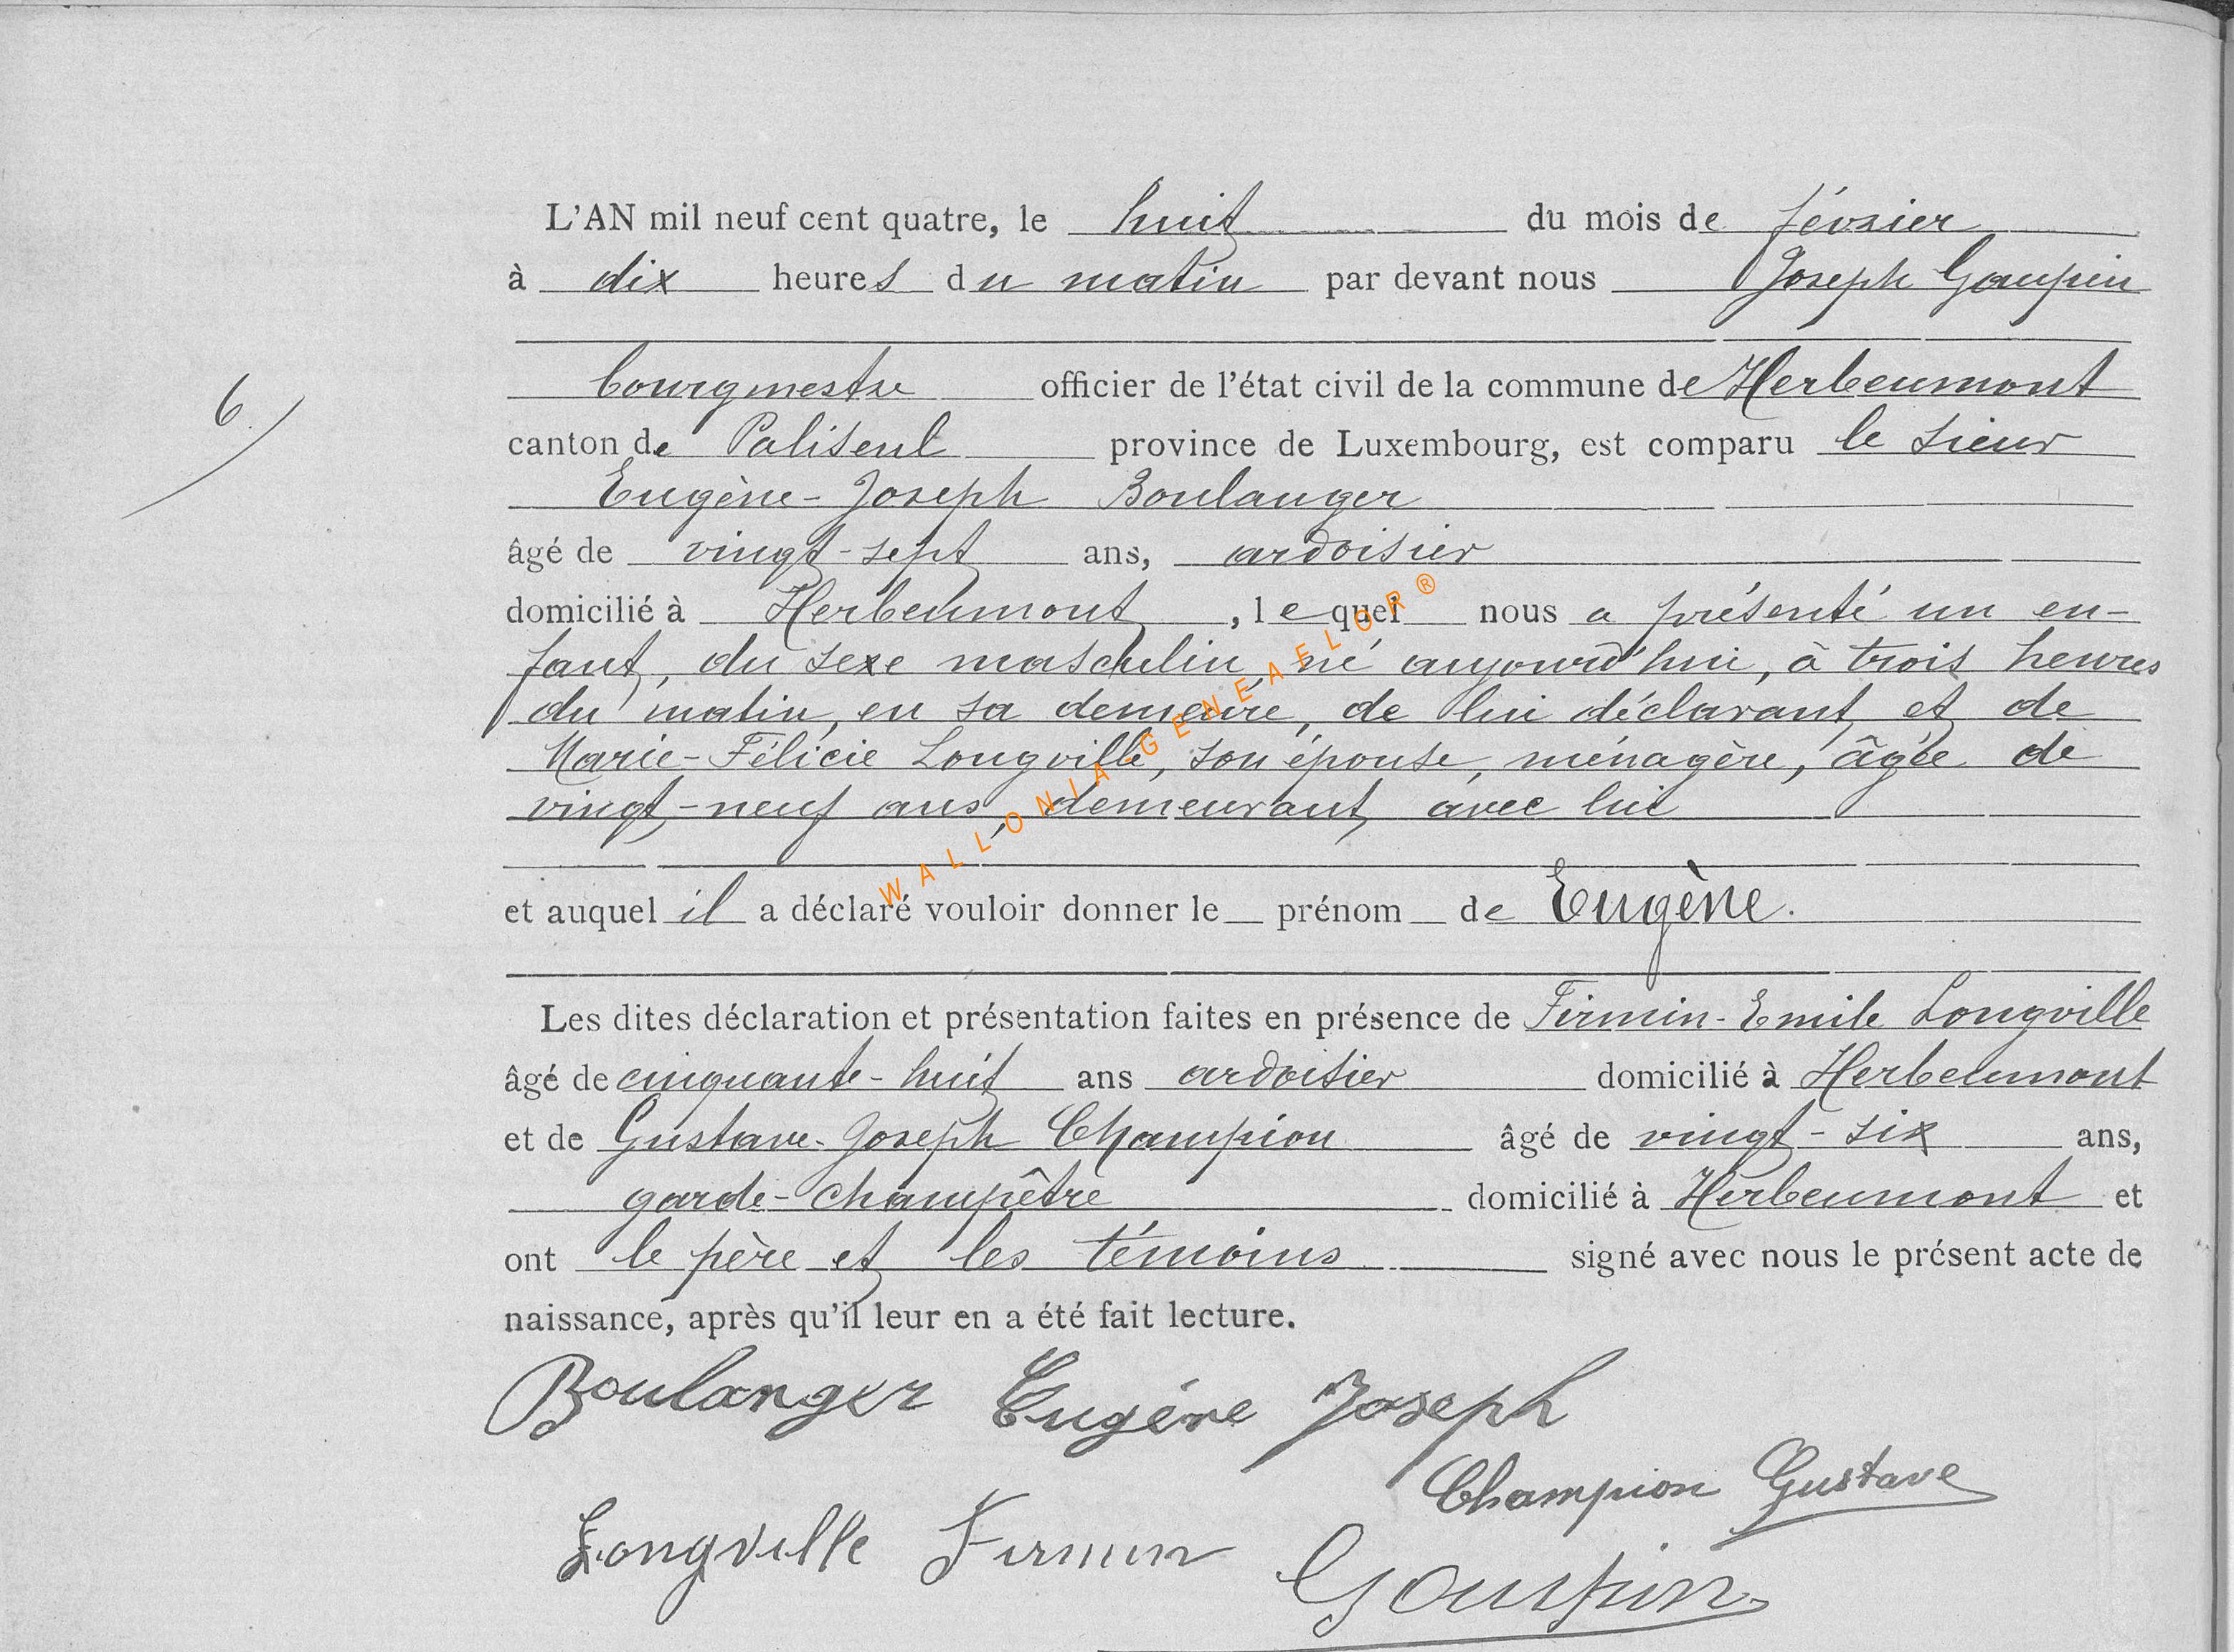 L'AN mil neuf cent quatre, le huit du mois de février
à dix heures du matin par devant nous Joseph Gaupin
bourgmestre officier de l'état civil de la commune de Herbeumont
6.
canton de Paliseul province de Luxembourg, est comparu le sieur
Eugène-Joseph Boulanger
âgé de vingt-sept ans, ardoisier
domicilié à Herbeumont, lequel nous a présenté un en-
fant, du sexe masculin, né aujourd'hui, à trois heures
du matin, en sa demeure, de lui déclarant et de
Marie-Félicie Longville, son épouse, ménagère, âgée de
vingt-neuf ans, demeurant avec lui
WALLONIA-GENEAELOR®
et auquel il a déclaré vouloir donner le prénom de Eugène.
Les dites déclaration et présentation faites en présence de Firmin-Emile Longville
âgé de cinquante-huit ans ardoisier domicilié à Herbeumont
et de Gustave-Joseph Champion âgé de vingt-six ans,
garde-champêtre domicilié à Herbeumont et
ont le père et les témoins signé avec nous le présent acte de
naissance, après qu'il leur en a été fait lecture.
Boulanger Eugène Joseph
Champion Gustave
Longville Firmin
Gaupin